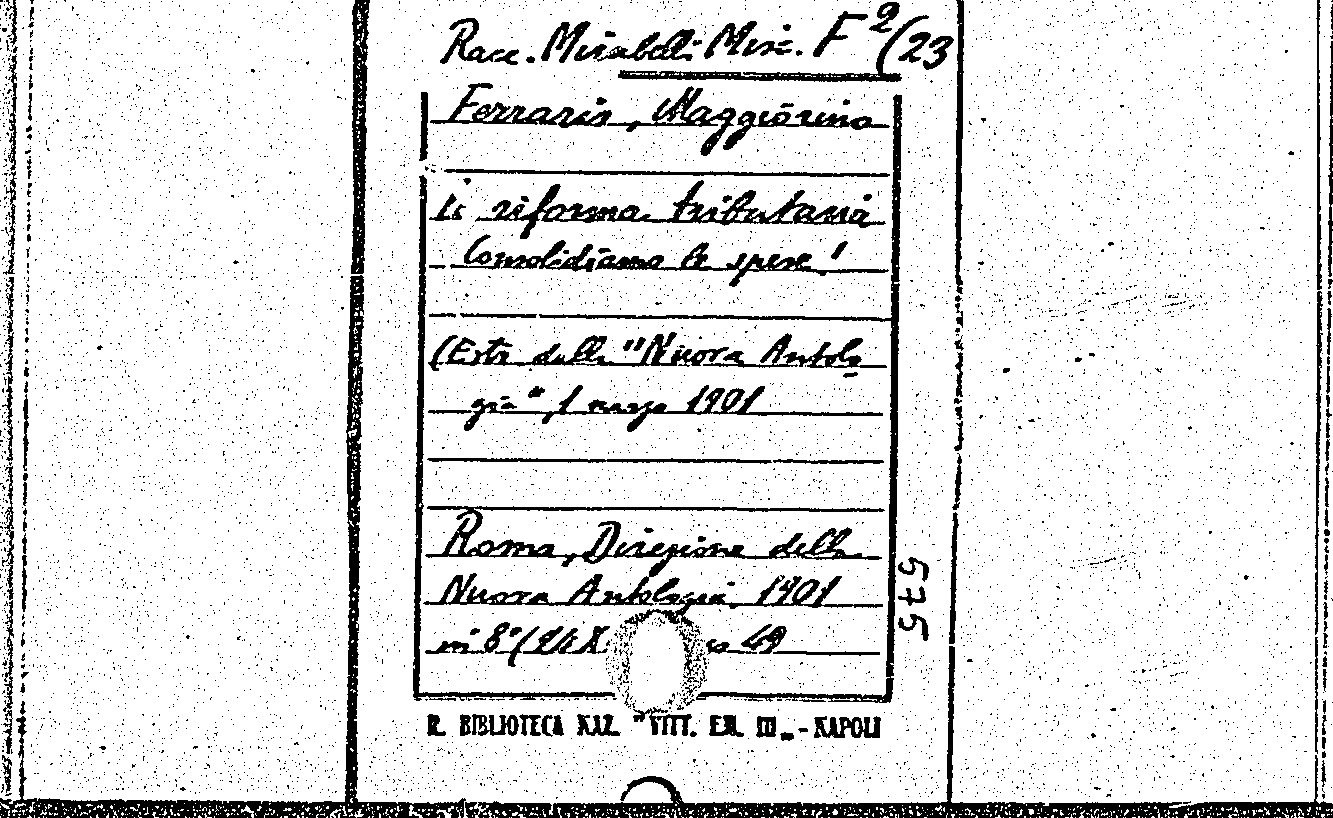 Racc. Mirabelli Misc. F 2/23
Ferraris, Maggiorino
La riforma tributaria
Consolidiamo le spese!
(Estr. dalla "Nuova Antolo
gia", 1 marzo 1901
Roma, Direzione della
Nuova Antologia, 1901
in 8° (24 X 49
575
R. BIBLIOTECA NAZ. "VITT. EM. III„ - NAPOLI